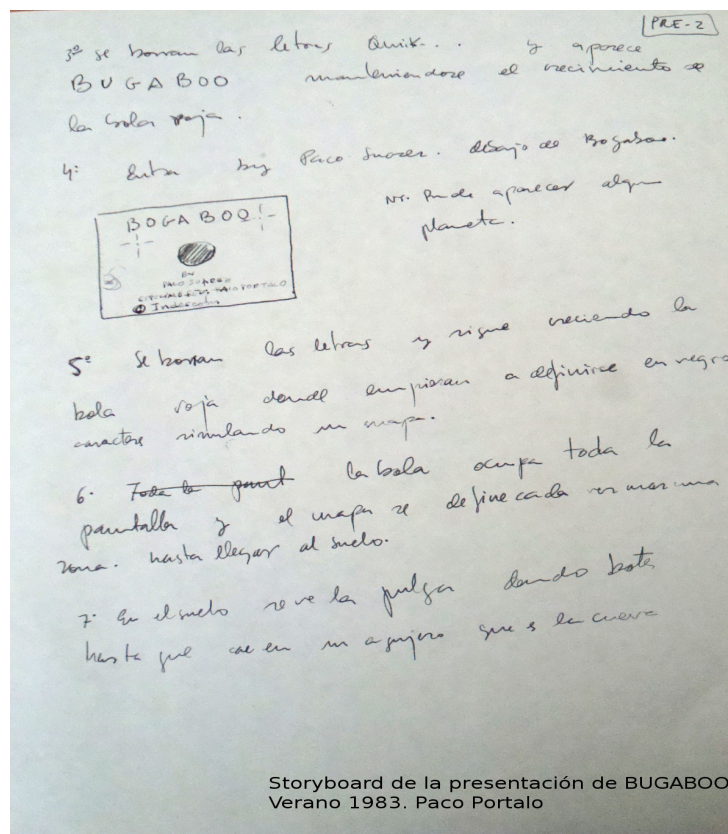 PRE-2
3º se borran las letras Quik... y aparece
BUGABOO manteniendose el crecimiento de
la bola roja.
4: Entra by Paco Suarez. debajo de Bogaboo.
NT. Puede aparecer algun
planeta.
BOGABOO
BY
PACO SUAREZ
PACO PORTALO
Indescomp
5º Se borran las letras y sigue creciendo la
bola roja donde empiezan a definirse en negro
caracteres simulando un mapa.
6. Toda la pant la bola ocupa toda la
pantalla y el mapa se define cada vez mas una
zona. hasta llegar al suelo.
7. En el suelo se ve la pulga dando botes
hasta que cae en un agujero que es la cueva
Storyboard de la presentación de BUGABOO
Verano 1983. Paco Portalo